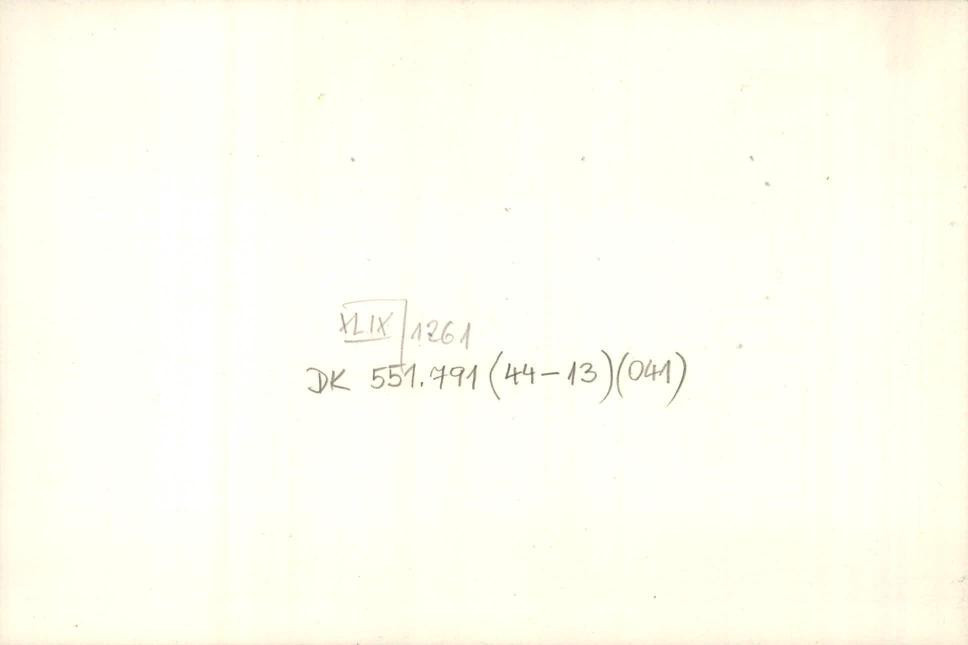 XLIX 1261
DK 551.791 (44-13)(041)